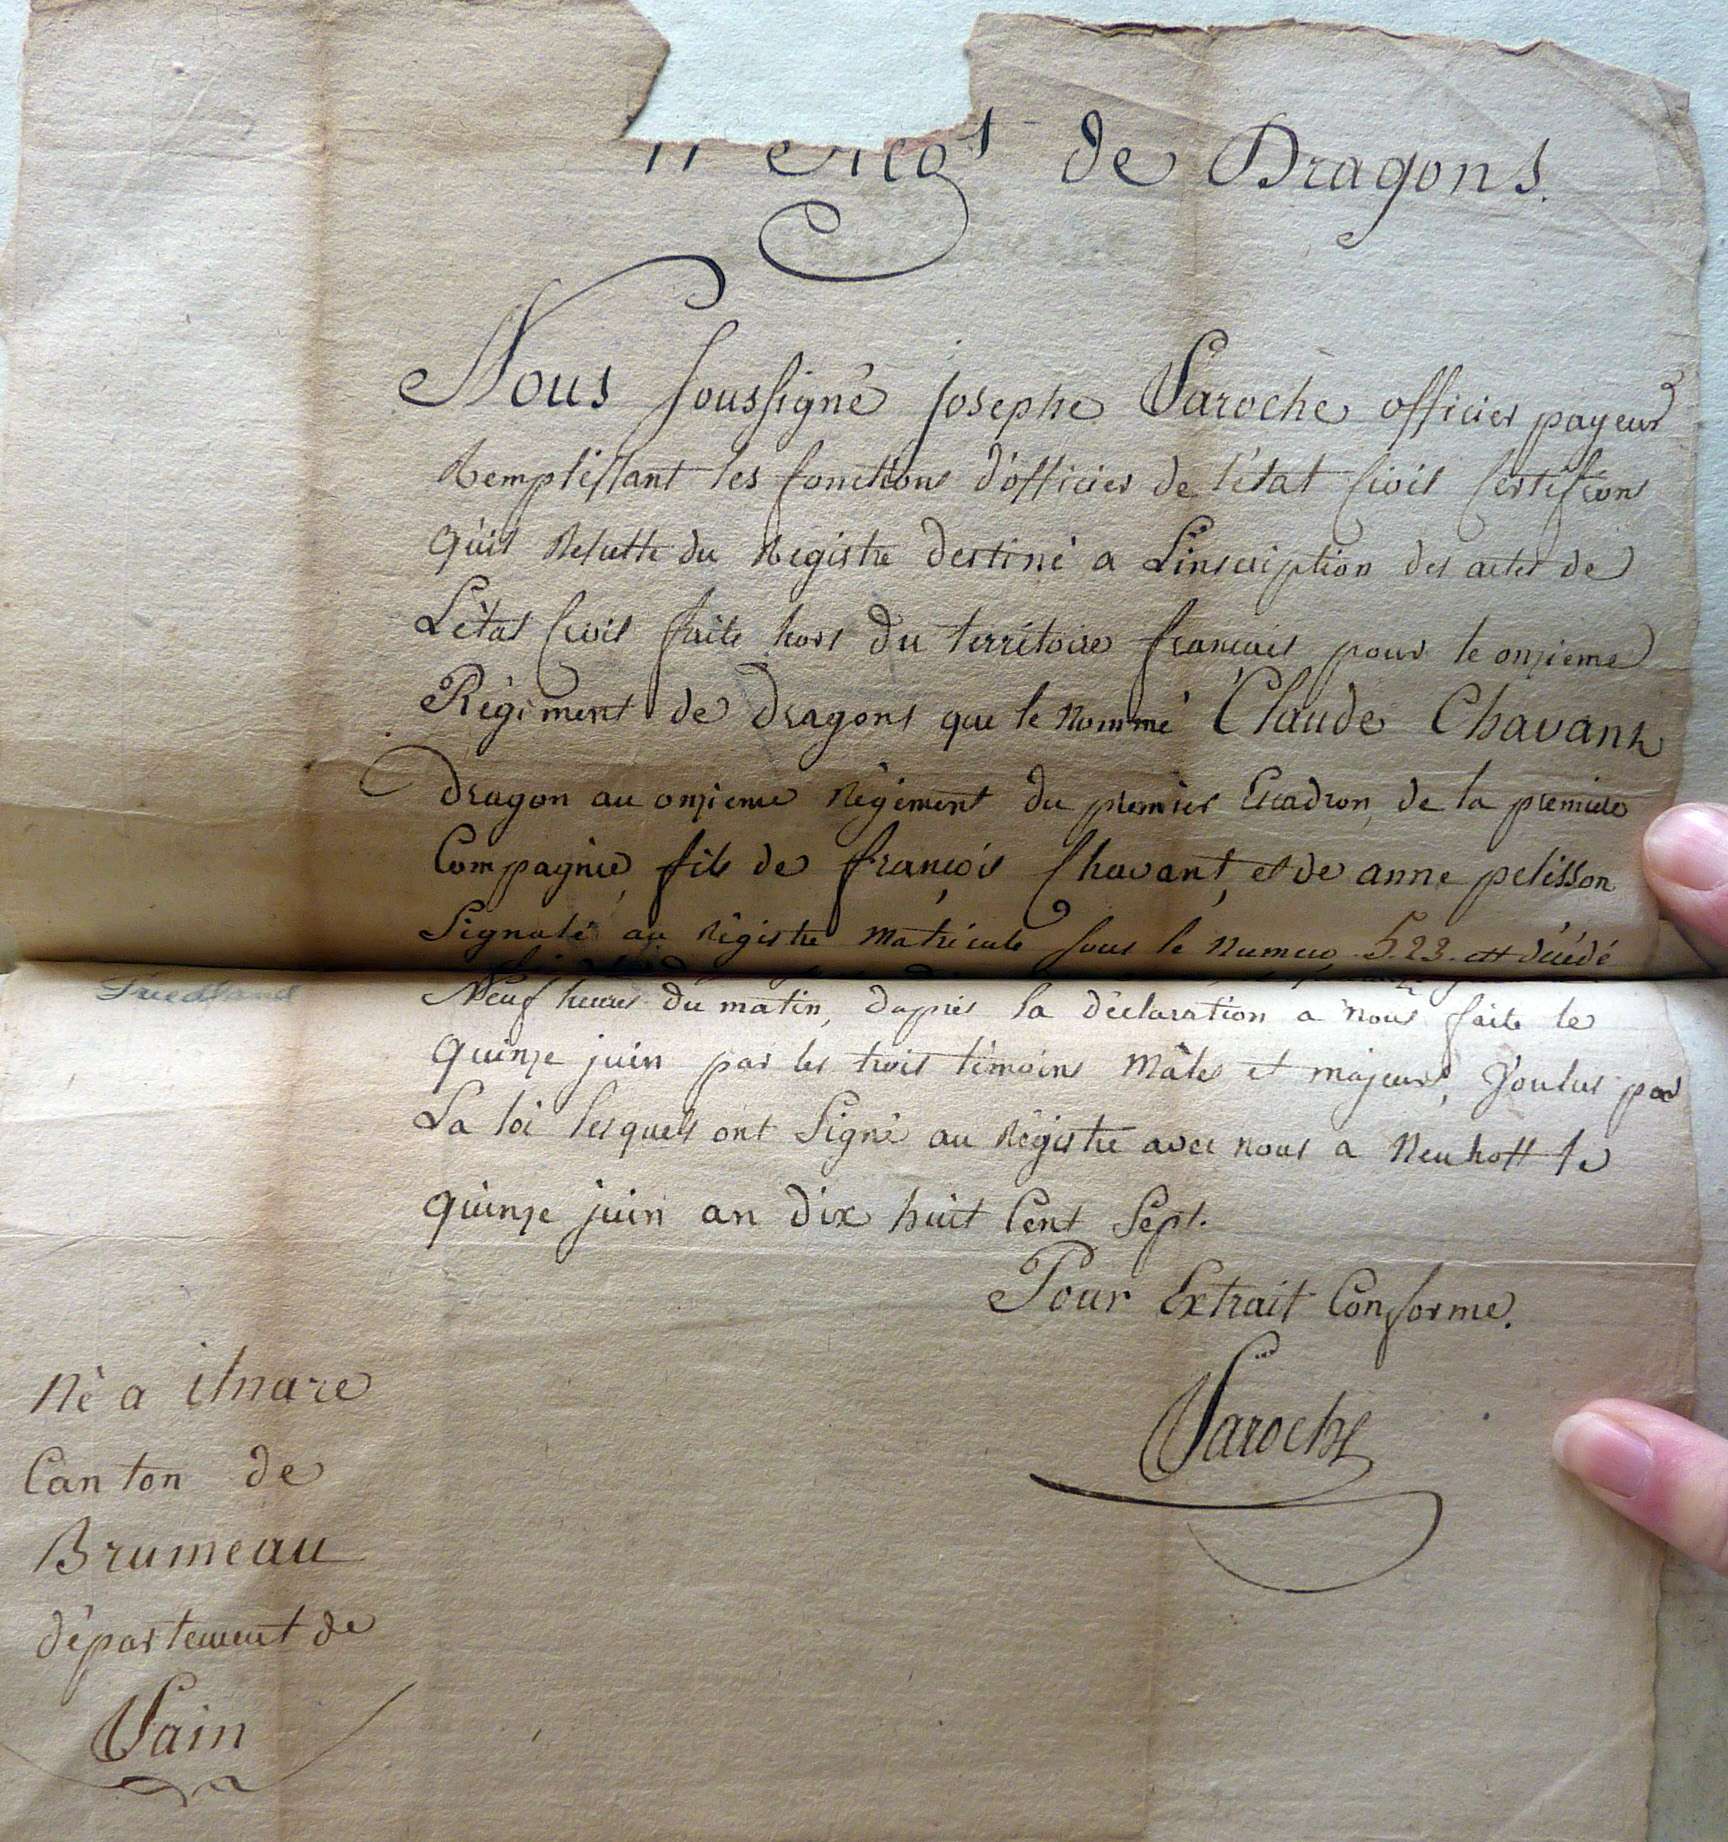 11e Regt de Dragons.
Nous soussigné josephe Laroche officier payeur
Remplissant les fonctions d'officier de l'état Civil Certifions
qu'il Resulte du Registre destiné a L'inscription des actes de
L'état Civil faite hors du territoire francais pour le onzieme
Régiment de dragons que le nommé Claude Chavant
dragon au onzieme régiment du premier Escadron, de la premiere
Compagnie, fils de françois Chavant, et de anne pelisson
Signalé au Régistre matricule sous le numero 523. est décédé
Friedland
Neuf heures du matin, dapres la déclaration a nous faite le
quinze juin par les trois témoins mâles et majeurs, Voulus par
La loi lesquels ont Signé au Régistre avec nous a Neuhoff le
quinze juin an dix huit Cent Sept.
Pour Extrait Conforme.
Laroche
Né a
Canton de
Brumeau
département de
Lain